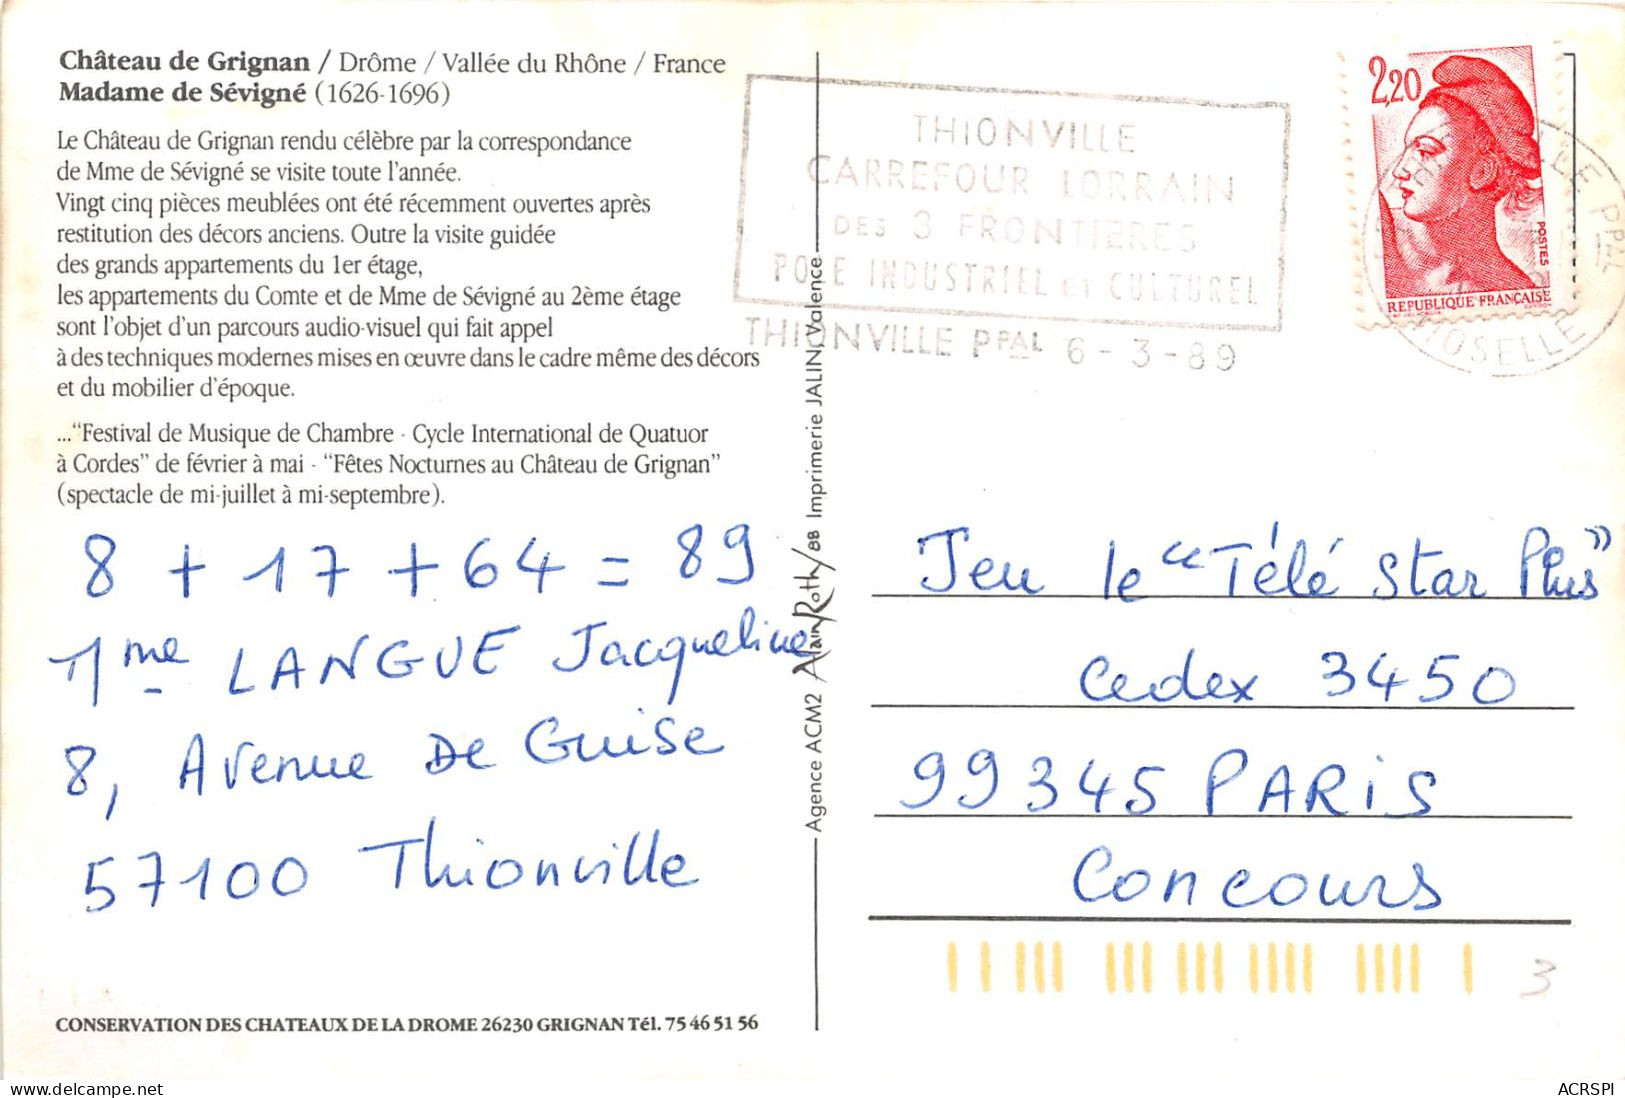 Château de Grignan / Drôme / Vallée du Rhône / France
Madame de Sévigné (1626-1696)
Le Château de Grignan rendu célèbre par la correspondance
de Mme de Sévigné se visite toute l'année.
Vingt cinq pièces meublées ont été récemment ouvertes après
restitution des décors anciens. Outre la visite guidée
des grands appartements du 1er étage,
les appartements du Comte et de Mme de Sévigné au 2ème étage
sont l'objet d'un parcours audio-visuel qui fait appel
à des techniques modernes mises en œuvre dans le cadre même des décors
et du mobilier d'époque.
..."Festival de Musique de Chambre - Cycle International de Quatuor
à Cordes" de février à mai - "Fêtes Nocturnes au Château de Grignan"
(spectacle de mi-juillet à mi-septembre).
8 + 17 + 64 = 89
1 me LANGUE Jacqueline
8, Avenue De Guise
57100 Thionville
CONSERVATION DES CHATEAUX DE LA DROME 26230 GRIGNAN Tél. 75 46 51 56
Agence ACM2 Alain Rothy/88 Imprimerie JALIN Valence
THIONVILLE
CARREFOUR LORRAIN
DES 3 FRONTIERES
POLE INDUSTRIEL et CULTUREL
THIONVILLE PPAL 6-3-89
2,20
POSTES
REPUBLIQUE FRANÇAISE
PPAL
MOSELLE
Jeu le "Télé Star Plus"
Cedex 3450
99345 PARIS
Concours
3
ACRSPI